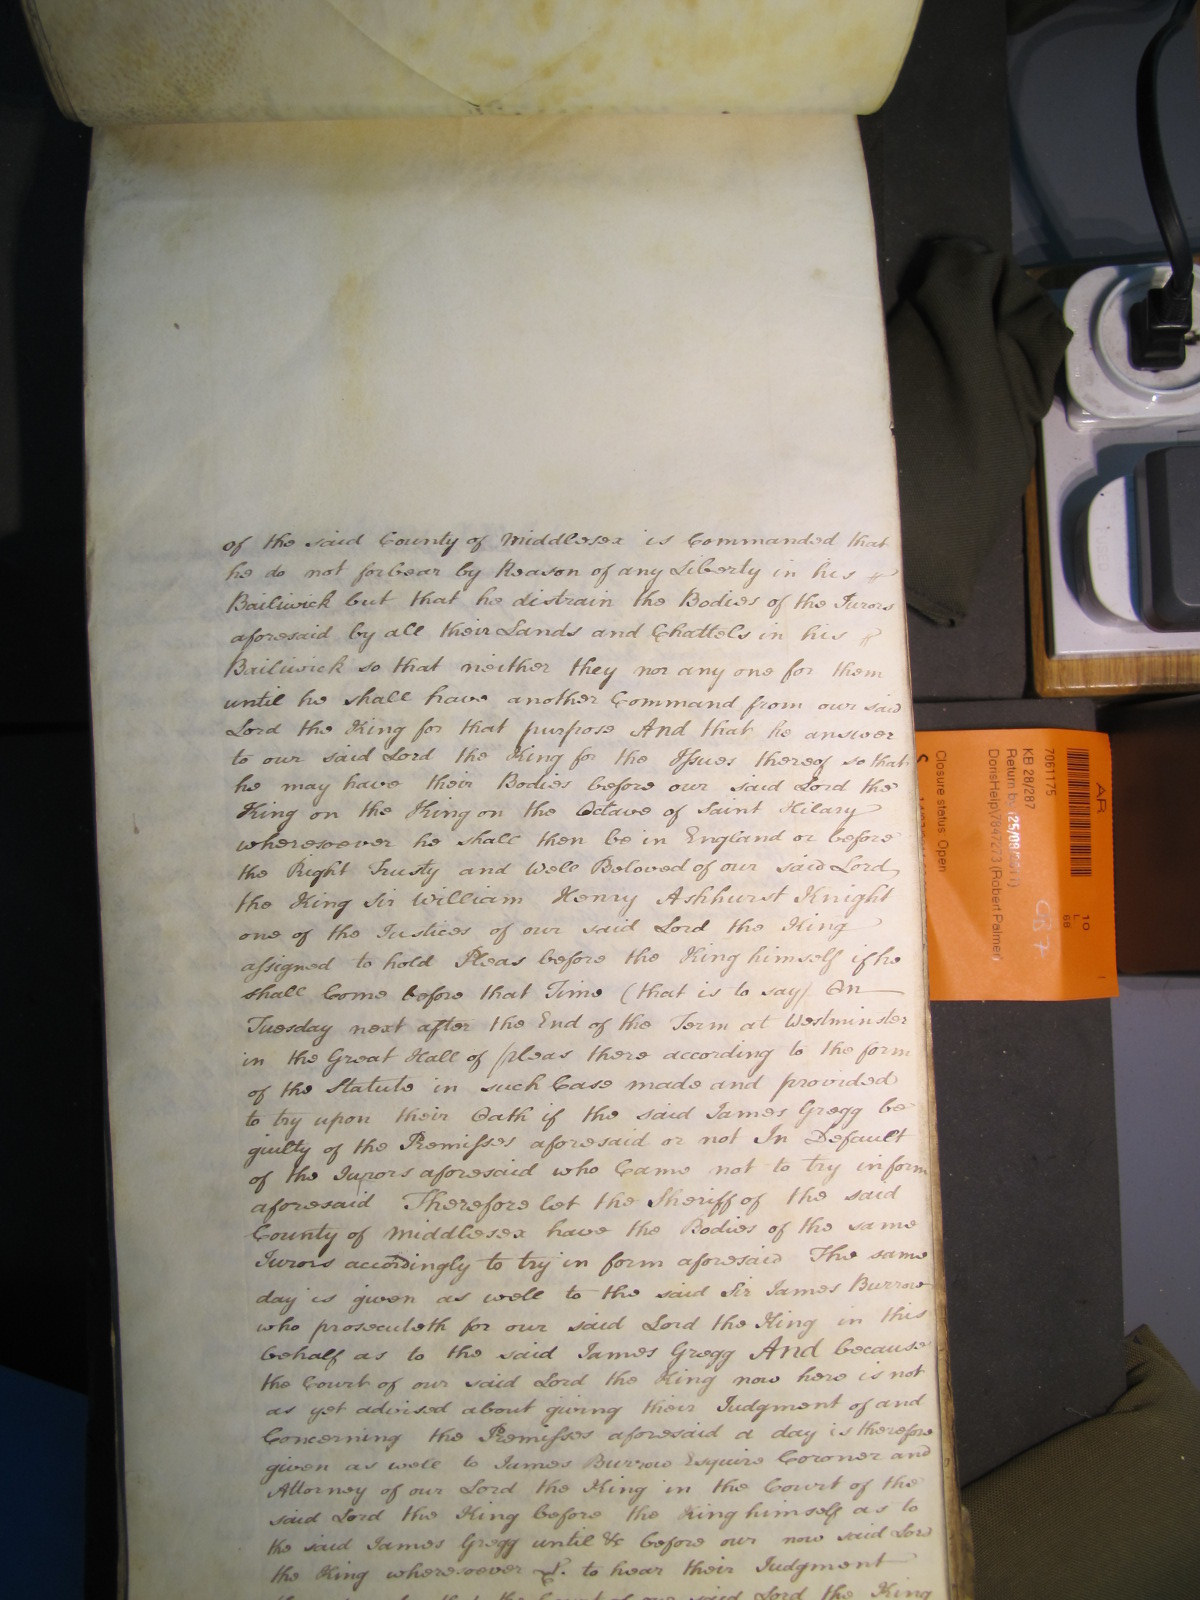 of the said County of Middlesex is Commanded that
he do not forbear by Reason of any Liberty in his
Bailiwick but that he distrain the Bodies of the Jurors
aforesaid by all their Lands and Chattels in his
Bailiwick so that neither they nor any one for them
until he shall have another Command from our said
Lord the King for that purpose And that he answer
to our said Lord the King for the Issues thereof so that
he may have their Bodies before our said Lord the
King on the King on the Octave of Saint Hilary
wheresoever he shall then be in England or before
the Right Trusty and Well Beloved of our said Lord
the King Sir William Henry Ashhurst Knight
one of the Justices of our said Lord the King
assigned to hold Pleas before the King himself if he
shall Come before that Time (that is to say) On
Tuesday next after the End of the Term at Westminster
in the Great Hall of pleas there according to the form
of the Statute in such Case made and provided
to try upon their Oath if the said James Gregg be
guilty of the Premisses aforesaid or not In Default
of the Jurors aforesaid who Came not to try in form
aforesaid Therefore let the Sheriff of the said
County of Middlesex have the Bodies of the same
Jurors accordingly to try in form aforesaid The same
day is given as well to the said Sir James Burrow
who prosecuteth for our said Lord the King in this
behalf as to the said James Gregg And because
the Court of our said Lord the King now here is not
as yet advised about giving their Judgment of and
Concerning the Premisses aforesaid a day is therefore
given as well to James Burrow Esquire Coroner and
Attorney of our Lord the King in the Court of the
said Lord the King before the King himself as to
the said James Gregg until &c before our now said Lord
the King wheresoever &. to hear their Judgment
said Lord the King
AR
10
L
68
7061175
KB 28/287
Return by 25/09/
DorisHelp\784723 (Robert Palmer)
Closure status: Open